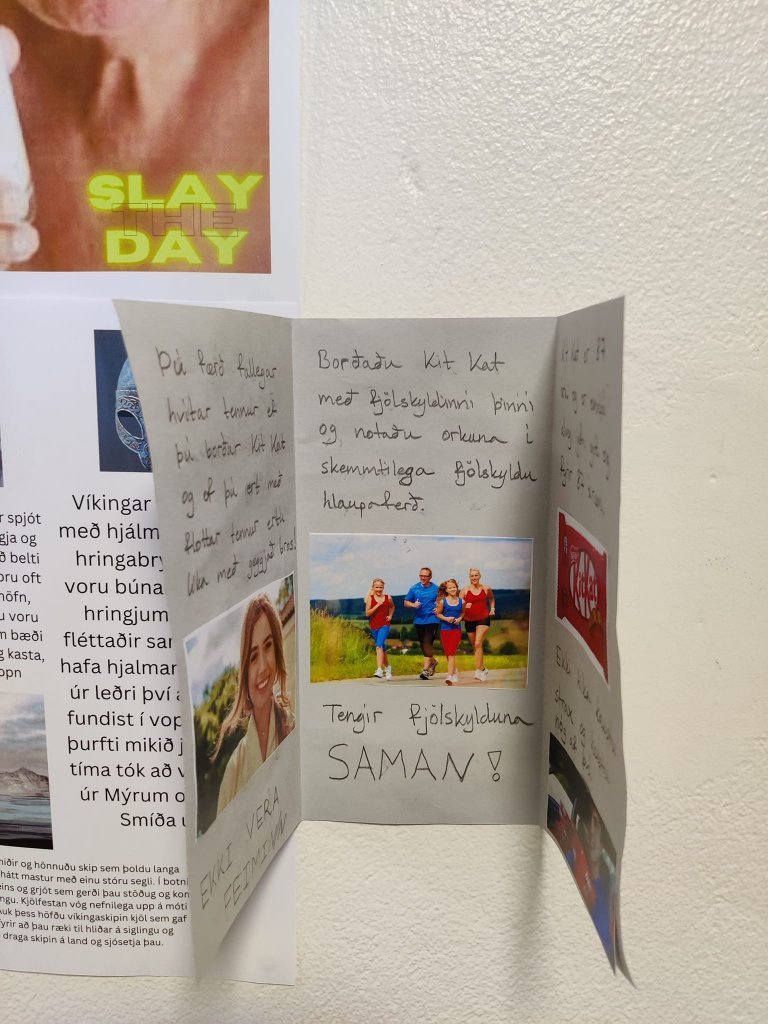 SLAY
THE
DAY
Þú færð fallegar
hvítar tennur ef
þú borðar Kit Kat
og ef þú ert með
flottar tennur ertu
líka með geggjað bros!
EKKI VERA
FEIMINN
Borðaðu Kit Kat
með fjölskyldinni þinni
og notaðu orkuna í
skemmtilega fjölskyldu
hlaupaferð.
Tengir fjölskylduna
SAMAN!
Kit Kat er 87
og er
fyrir 87
KitKat
Ekki hika
strax og
nóg af því
r spjót
gja og
ð belti
oru oft
höfn,
u voru
m bæði
g kasta,
opn
Víkingar
með hjálm
hringabry
voru búna
hringjum
fléttaðir sar
hafa hjalmar
úr leðri því a
fundist í vop
þurfti mikið j
tíma tók að v
úr Mýrum o
Smíða u
niðir og hönnuðu skip sem þoldu langa
hátt mastur með einu stóru segli. Í botni
eins og grjót sem gerði þau stöðug og kon
ngu. Kjölfestan vóg nefnilega upp á móti
Auk þess höfðu víkingaskipin kjöl sem gaf
fyrir að þau ræki til hliðar á siglingu og
draga skipin á land og sjósetja þau.